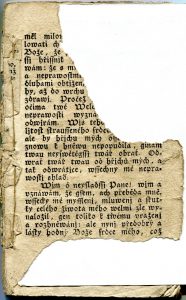 měl milo
lowati ch
Bože, že
ssi hřissnik
wám: že s m
a neprawostm
dluhami obtížen,
by, až do wrchu
zdrawí. Protež
očima twé Wele
neprawosti wyzná
odwírám. Wis tehd
litost strausseného srdce
ale by hřichy mých o
znowu k hněwu nepopudila, ginam
twau neyswětěgssi twář obrať. Od
wrať twář twau od hřichů mých, a
tak odwrátice, wssechny mé nepra-
wosti ahlaď.
Wjm ó neysladssi Pane: wjm a
wznáwám, že gsem, ach přebědá mně,
wssecky mé myssleni, mluweni a skut-
ky celého žiwota mého welmi zle wy-
naložil, gen toliko k twému vražení
a rozhněwání: ale nyní předobrý a
lásky hodný Bože srdce mého, což